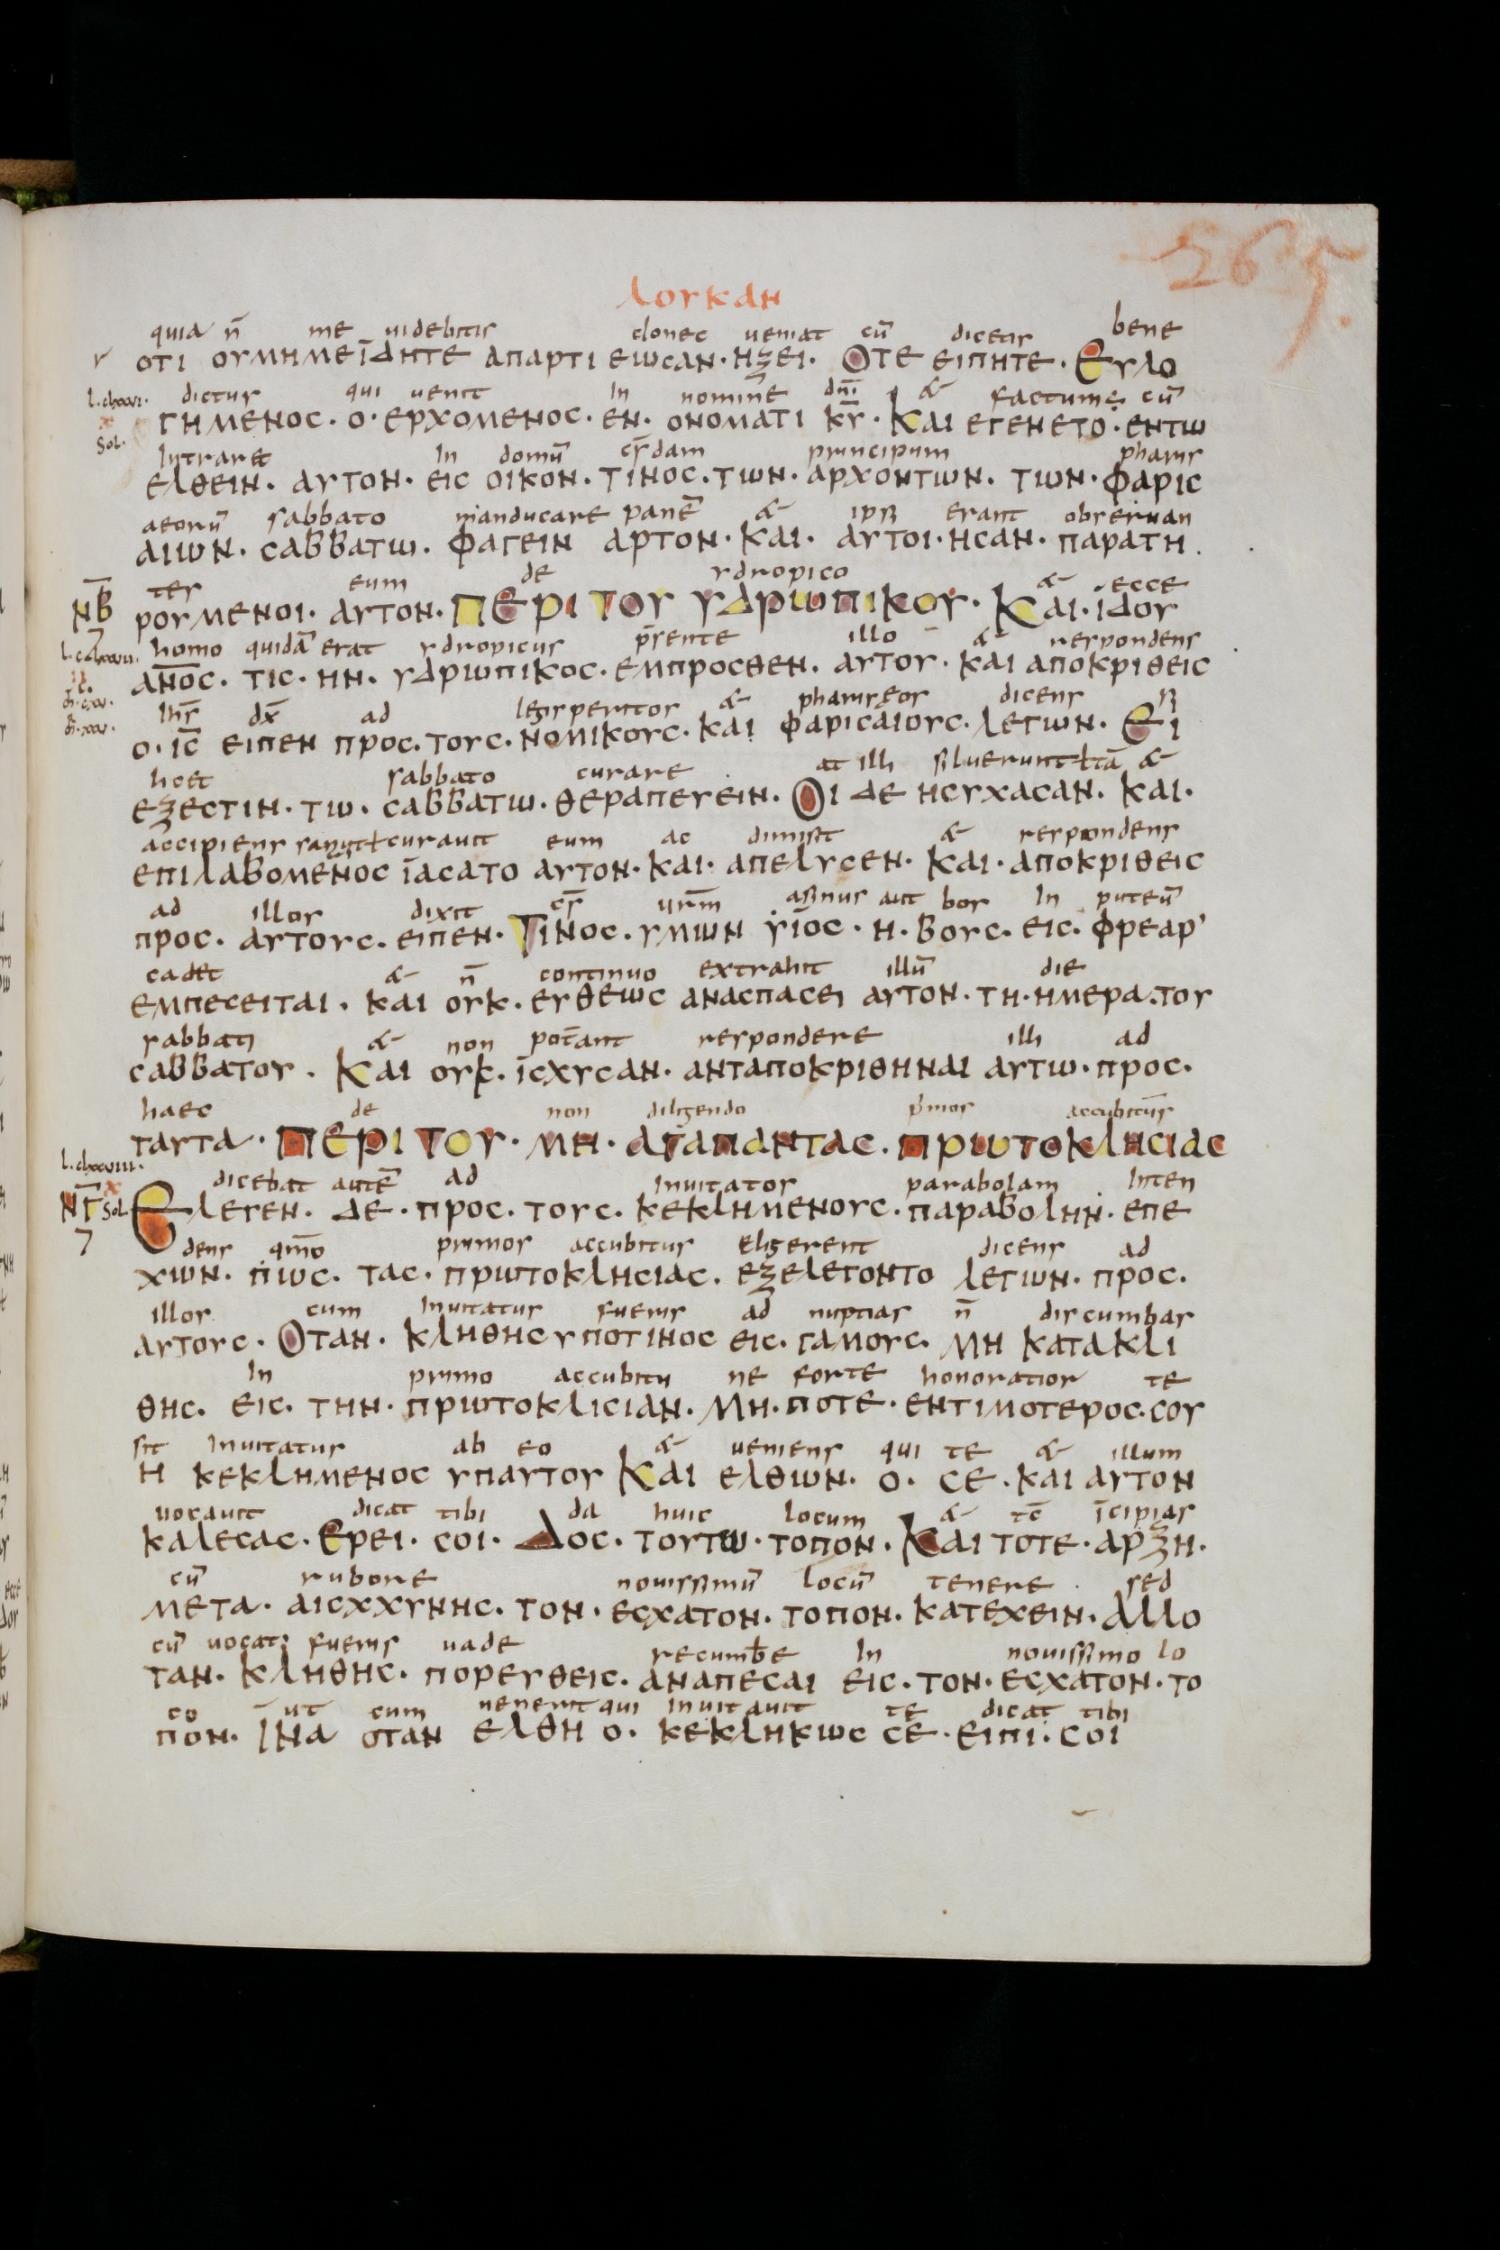 265.
λογκαν
quia n̄ me uidebitis donec ueniat cū dicetis bene
οτι ογμημεϊδητε απαρτι εωσαν· ηξει· Οτε ειπητε· Εγλο
l. clxxvi. dictus qui uenit In nomine dn̄i & factum ÷ cū
γημενος· ο· ερχομενος· εν· ονοματι κ̄γ̄· Και εγενετο· εντω
Sol.
Intraret In domū cs̄dam principum pharis
ελθειν· αγτον· εις οικον· τινος· των· αρχοντων· των· φαρις
aeorū sabbato manducare panē & ipsi erant obseruan
αιων· σαββατω· φαγειν αρτον· και· αγτοι· ησαν· παρατη
tes eum de ydropico & ecce
Ν̄Β̄ ρογμενοι· αγτον· περι τογ γδρωπικογ· Και· ϊδογ
homo quidā erat ydropicus p̄sente illo & respondens
αν̄ος· τις· ην· γδρωπικος· εμπροσθεν· αγτογ· και αποκριθεις
Ihs̄ dx̄ ad legisperitos & phariseos dicens si
ο· ῑς̄ ειπεν προς· τογς· νομικογς· και φαρισαιογς· λεγων· Ει
licet sabbato curare at illi siluerunt ł tā &
εξεστιν· τω· σαββατω· θεραπεγειν· Οι δε ησγχασαν· και·
accipiens sanauit ł curauit eum ac dimisit & respondens
επιλαβομενος ϊασατο αγτον· και· απελγσεν· Και· αποκριθεις
ad illos dixit cs̄ ur̄m asinus aut bos In puteū
προς· αγτογς· ειπεν· Τινος· γμων γϊος· η· βογς· εις· φρεαρ'
cadet & n̄ continuo extrahit illū die
εμπεσειται· και ογκ· εγθεως ανασπασει αγτον· τη· ημερα· τογ
sabbati & non pot̄ant respondere illi ad
σαββατογ· Και ογκ· ϊσχγσαν· ανταποκριθηναι αγτω· προς·
haec de non diligendo p̄mos accubit̄us
ταγτα· περι τογ· μη· αγαπαντας· πρωτοκλησιας
l. clxxviii. dicebat autē ad Inuitatos parabolam Inten
Ν̄Γ̄ Sol Ελεγεν· δε· προς· τογς· κεκλημενογς· παραβολην· επε
dens qm̄o primos accubitus eligerent dicens ad
χων· πως· τας· πρωτοκλησιας· εξελεγοντο λεγων· προς·
illos cum Inuitatus fueris ad nuptias n̄ discumbas
αγτογς· Οταν· κληθης γποτινος εις· γαμογς· μη κατακλι
In primo accubitu ne forte honoratior te
θης· εις· την· πρωτοκλισιαν· Μη· ποτε· εντιμοτερος· σογ
sit Inuitatus ab eo & ueniens qui te & illum
η κεκλημενος γπαγτογ Και ελθων· ο· σε· και αγτον
uocauit dicat tibi da huic locum & tc̄ īcipias
καλεσας· Ερει· σοι· Δος· τογτω· τοπον· Και τοτε· αρξη·
cū rubore nouissimū locū tenere sed
μετα· αισχχγνης· τον· εσχατον· τοπον· κατεχειν· αλλο
cū uocatꝰ fueris uade recumb̄e In nouissimo lo
ταν· κληθης· πορεγθεις· αναπεσαι εις· τον· εσχατον· το
co ut cum uenerit qui Inuitauit te dicat tibi
πον· Ινα οταν ελθη ο· κεκληκως σε· ειπι· σοι